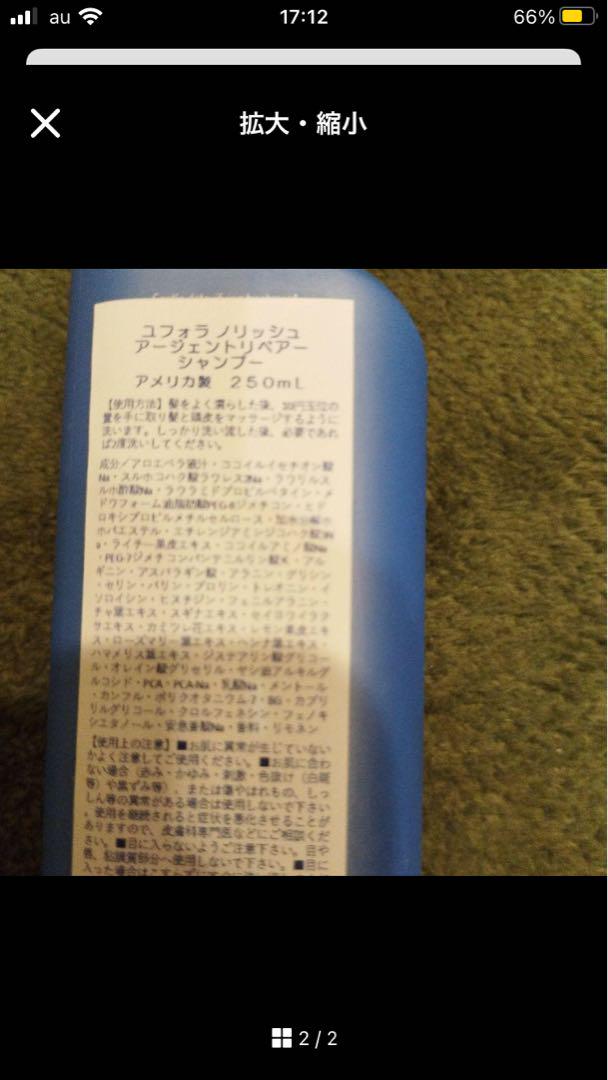 au
17:12
66%
拡大・縮小
ユフォラ ノリッシュ
アージェントリペアー
シャンプー
アメリカ製 250mL
【使用方法】髪をよく濡らした後、
量を手に取り髪と頭皮をマッサージするように
洗います。しっかり洗い流した後、必要であれ
ば2度洗いしてください。
成分／アロエベラ液汁・ココイルイセチオン酸
Na・スルホコハク酸ラウレス2Na・ラウリルス
ルホ酢酸Na・ラウラミドプロピルベタイン・メ
ドウフォーム油脂肪酸PEG-8ジメチコン・ヒド
ロキシプロピルメチルセルロース・加水分解ホ
ホバエステル・エチレンジアミンジコハク酸3N
a・ライチー果皮エキス・ココイルアミノ酸Na
・PEG-7ジメチコン・アル
ギニン・アスパラギン酸・アラニン・グリシン
・セリン・バリン・プロリン・トレオニン・イ
ソロイシン・ヒスチジン・フェニルアラニン・
チャ葉エキス・スギナエキス・セイヨウイラク
サエキス・カミツレ花エキス・レモン果皮エキ
ス・ローズマリー葉エキス・ヘンナ葉エキス・
ハマメリス葉エキス・ジステアリン酸グリコー
ル・オレイン酸グリセリル・ヤシ油アルキルグ
ルコシド・PCA・PCA-Na・乳酸Na・メントール
・カンフル・ポリクオタニウム-7・BG・カプリ
リルグリコール・クロルフェネシン・フェノキ
シエタノール・安息香酸Na・香料・リモネン
【使用上の注意】■お肌に異常が生じていない
かよく注意してご使用ください。■お肌に合わ
ない場合（赤み・かゆみ・刺激・色抜け（白斑
等）や黒ずみ等）、または傷やはれもの、しっ
しん等の異常がある場合は使用しないで下さい
。使用を継続されると症状を悪化させることが
ありますので、皮膚科専門医などにご相談くだ
さい。■目に入らないようご注意下さい。目や
唇、粘膜質部分へ使用しないで下さい。■目に
入った場合はこすらずに
2 / 2